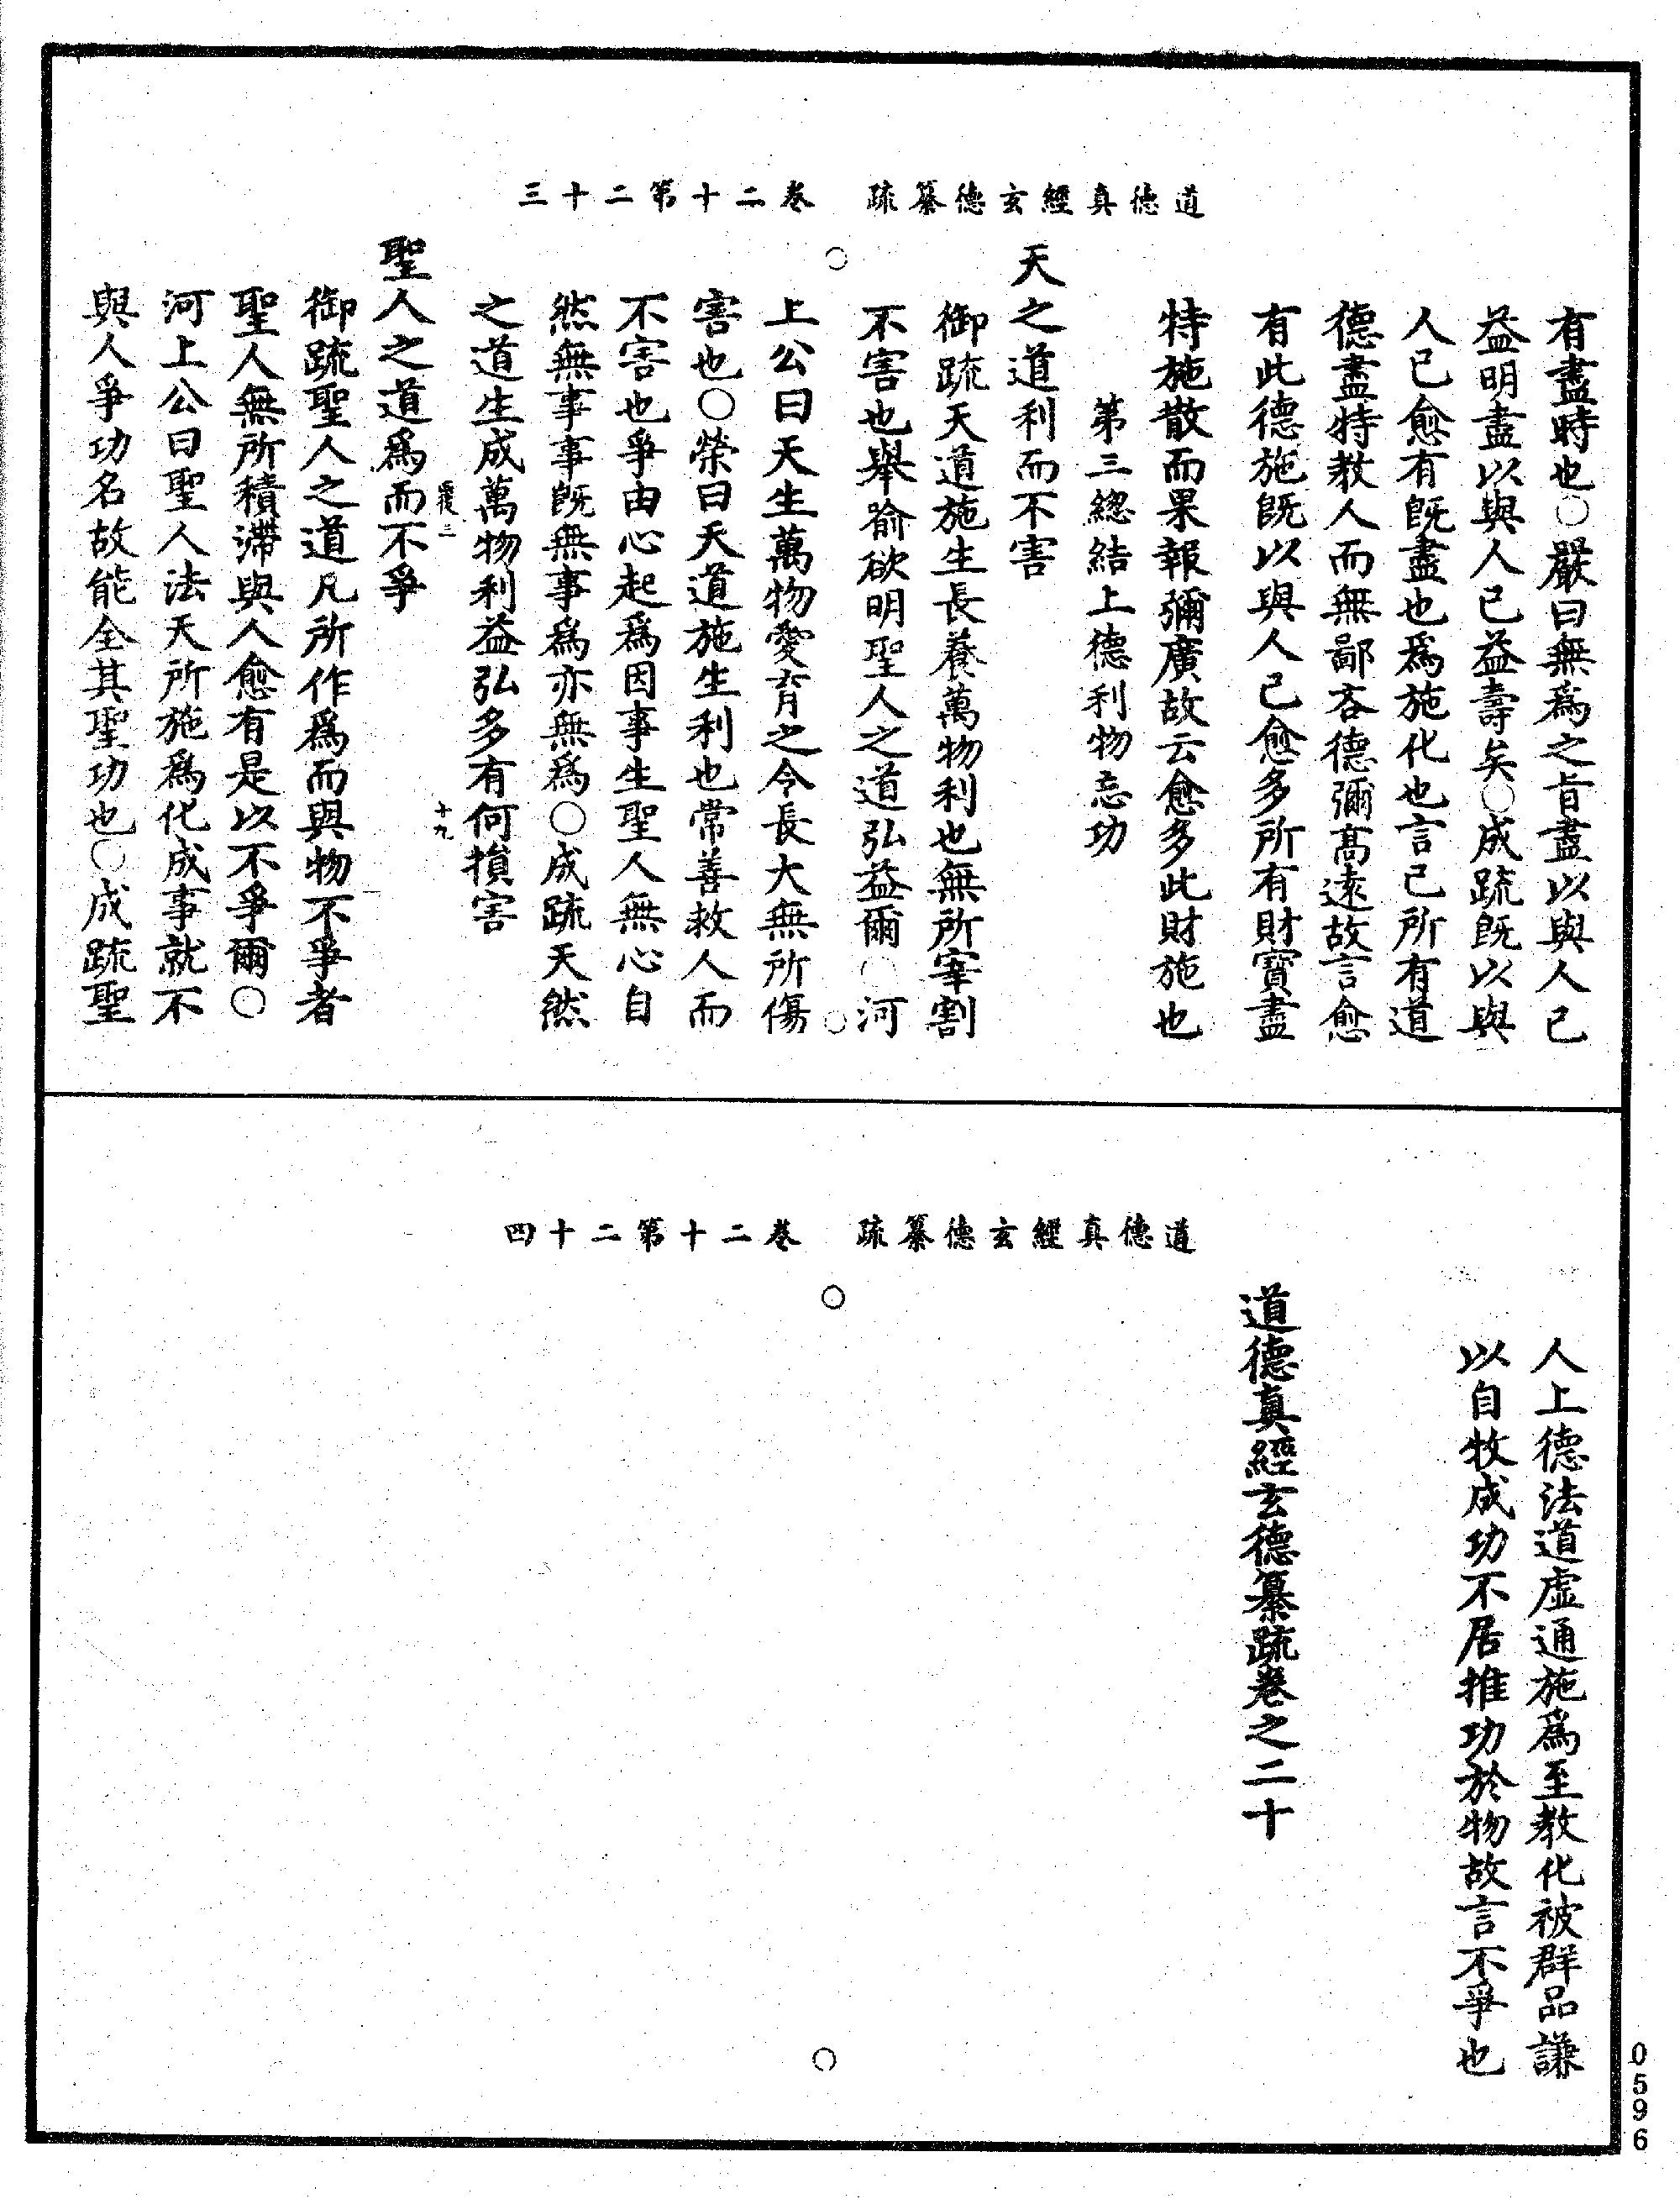 道德真經玄德纂疏　卷二十第二十三
有盡時也〇嚴曰無爲之旨盡以與人已
益明盡以與人已益壽矣〇成疏既以與
人已愈有既盡也爲施化也言己所有道
德盡持教人而無鄙吝德彌高遠故言愈
有此德施既以與人己愈多所有財寶盡
持施散而果報彌廣故云愈多此財施也
第三緫結上德利物忘功
天之道利而不害
御疏天道施生長養萬物利也無所宰割
不害也舉喻欲明聖人之道弘益爾〇河
上公曰天生萬物愛育之令長大無所傷
害也〇榮曰天道施生利也常善救人而
不害也爭由心起爲因事生聖人無心自
然無事事既無事爲亦無爲〇成疏天然
之道生成萬物利益弘多有何損害
十九
聖人之道爲而不爭
御疏聖人之道凡所作爲而與物不爭者
聖人無所積滯與人愈有是以不爭爾〇
河上公曰聖人法天所施爲化成事就不
與人爭功名故能全其聖功也〇成疏聖
道德真經玄德纂疏　卷二十第二十四
人上德法道虛通施爲至教化被群品謙
以自牧成功不居推功於物故言不爭也
道德真經玄德纂疏卷之二十
0596